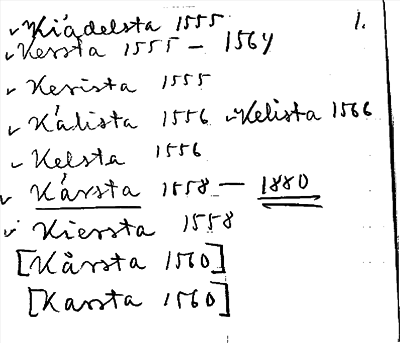 ✓ Kiädelsta 1555 1.
✓ Kessta 1555 – 1564
✓ Kerista 1555
✓ Kälista 1556 ✓ Kelista 1566
✓ Kelsta 1556
✓ Kårsta 1558 – 1880
✓ Kiersta 1558
[Kårsta 1560]
[Karsta 1560]